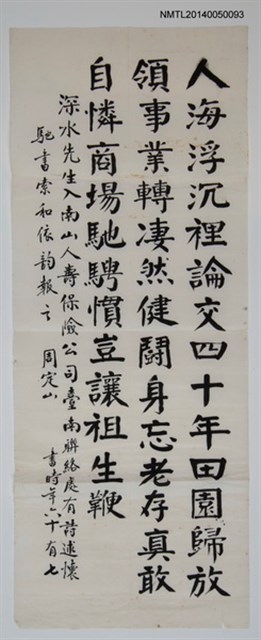 NMTL20140050093
人海浮沉裡論交四十年田園歸放
領事業轉凄然健鬪身忘老存真敢
自憐商場馳騁慣豈讓祖生鞭
深水先生入南山人壽保險公司臺南聯絡處有詩述懷
馳書索和依韵報之 周定山 書時年六十有七